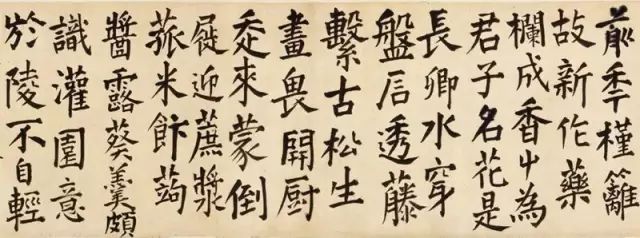 前秊槿籬
故新作藥
欄成香艸為
君子名花是
長卿水穿
盤石透藤
繫古松生
畫畏開厨
走來蒙倒
屣迎蔗漿
菰米飰蒟
醬露葵羹頗
識灌園意
於陵不自輕